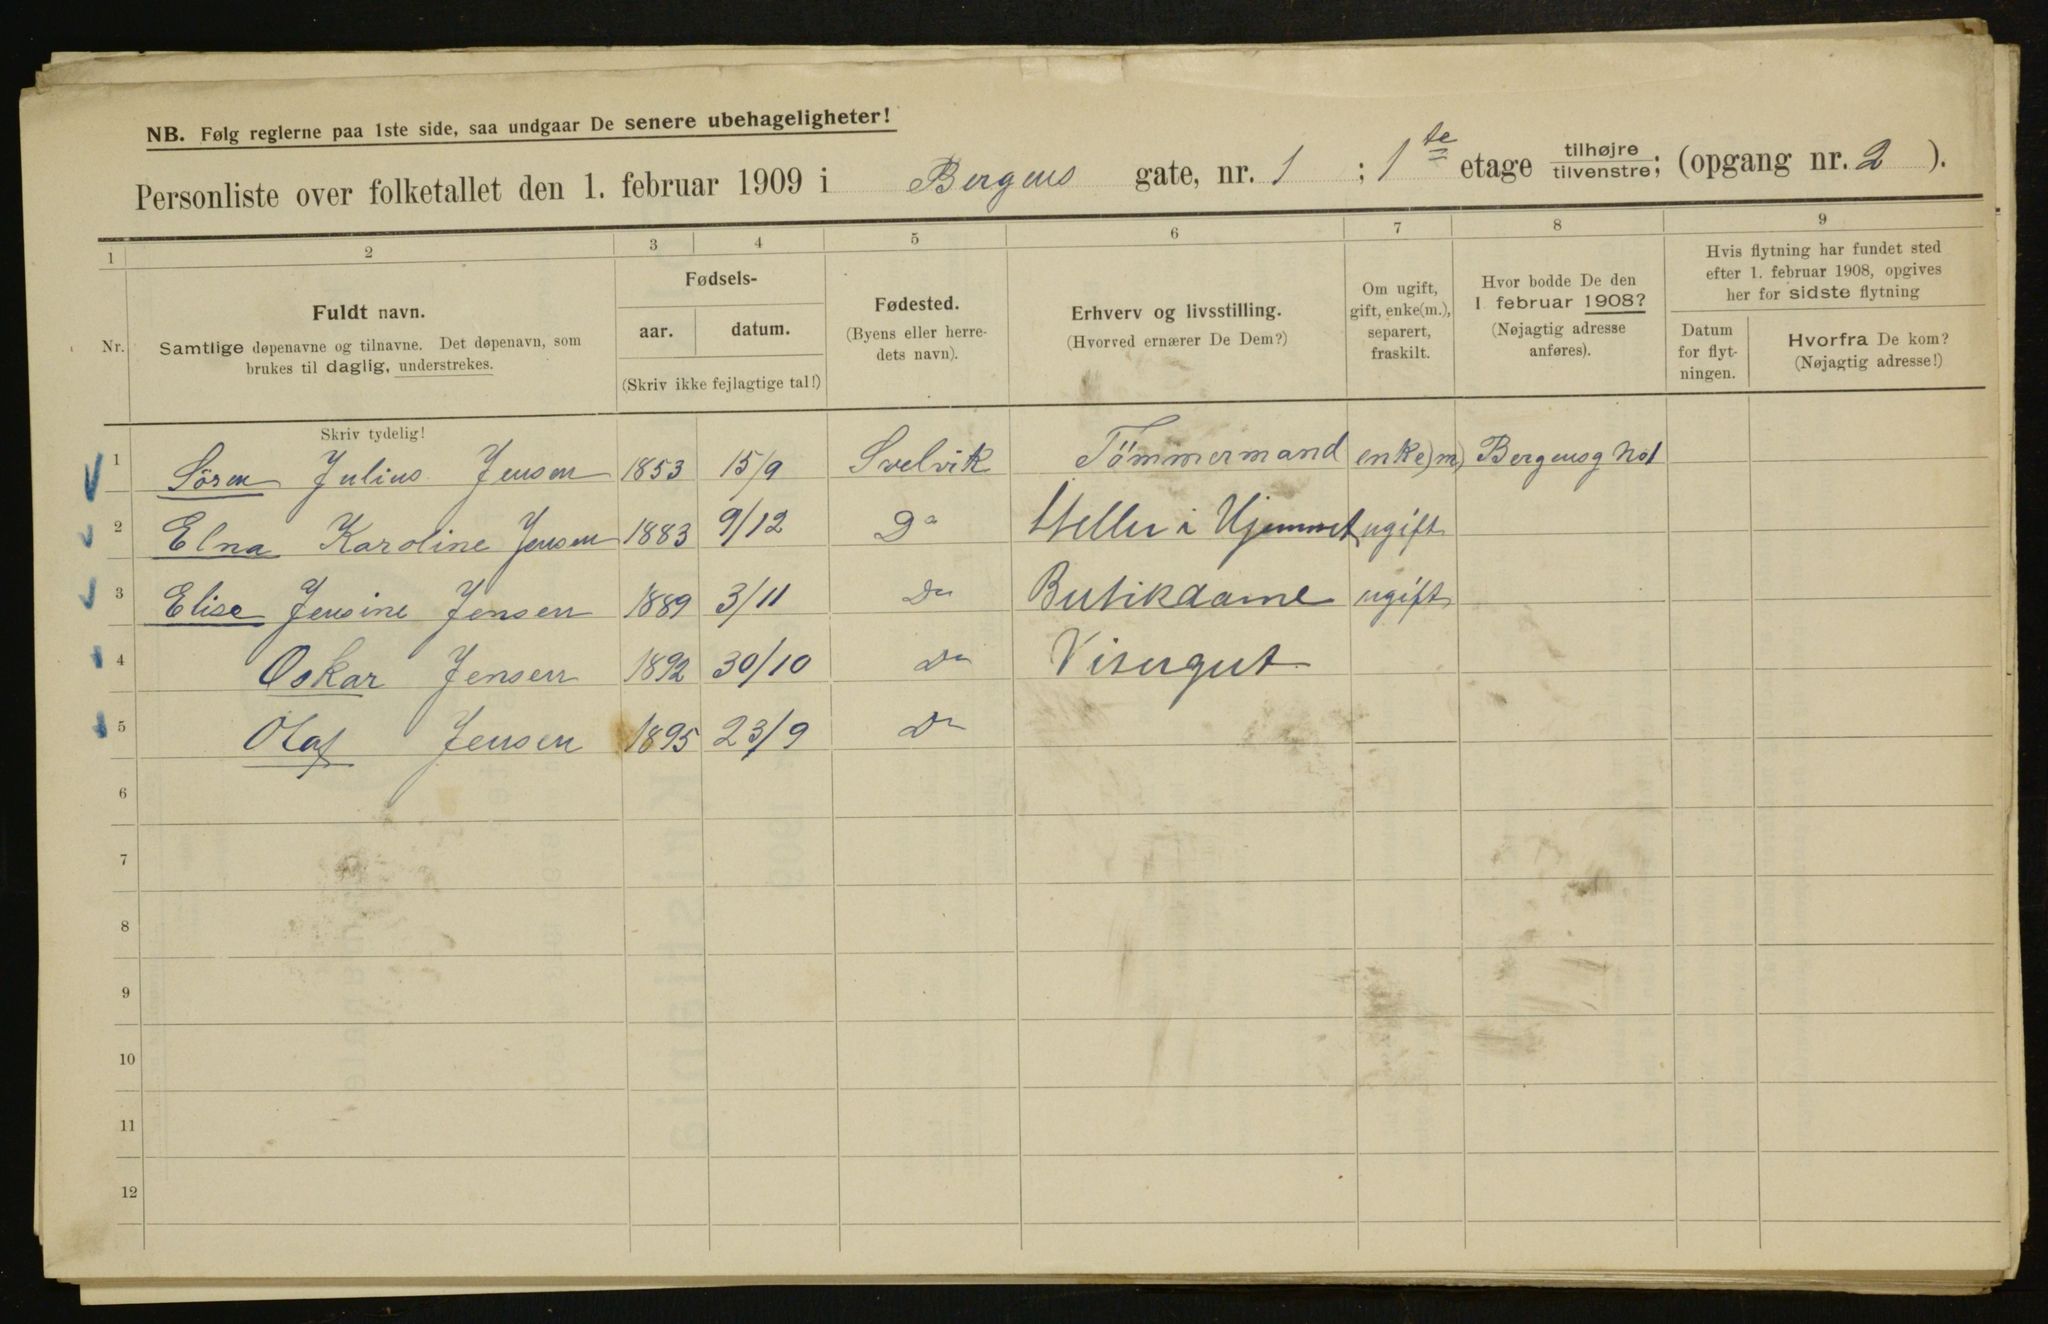 NB. Følg reglerne paa 1ste side, saa undgaar De senere ubehageligheter!
Personliste over folketallet den 1. februar 1909 i Bergens gate, nr. 1 ; 1te etage tilhøjre tilvenstre; (opgang nr. 2 ).
1 2 3 4 5 6 7 8 9
Nr.
Fuldt navn.
Samtlige døpenavne og tilnavne. Det døpenavn, som
brukes til daglig, understrekes.
Skriv tydelig!
Fødsels-
aar. datum.
(Skriv ikke fejlagtige tal!)
Fødested.
(Byens eller herre-
dets navn).
Erhverv og livsstilling.
(Hvorved ernærer De Dem?)
Om ugift,
gift, enke(m.),
separert,
fraskilt.
Hvor bodde De den
1 februar 1908?
(Nøjagtig adresse
anføres).
Hvis flytning har fundet sted
efter 1. februar 1908, opgives
her for sidste flytning
Datum
for flyt-
ningen.
Hvorfra De kom?
(Nøjagtig adresse!)
1 Sören Julius Jensen 1853 15/9 Svelvik Tömmermand enke)m) Bergensg No1
2 Elna Karoline Jensen 1883 9/12 Do Steller i Hjemmet ugift
3 Elise Jensine Jensen 1889 3/11 Do Butikdame ugift
4 Oskar Jensen 1892 30/10 Do Visergut
5 Olaf Jensen 1895 23/9 Do
6
7
8
9
10
11
12